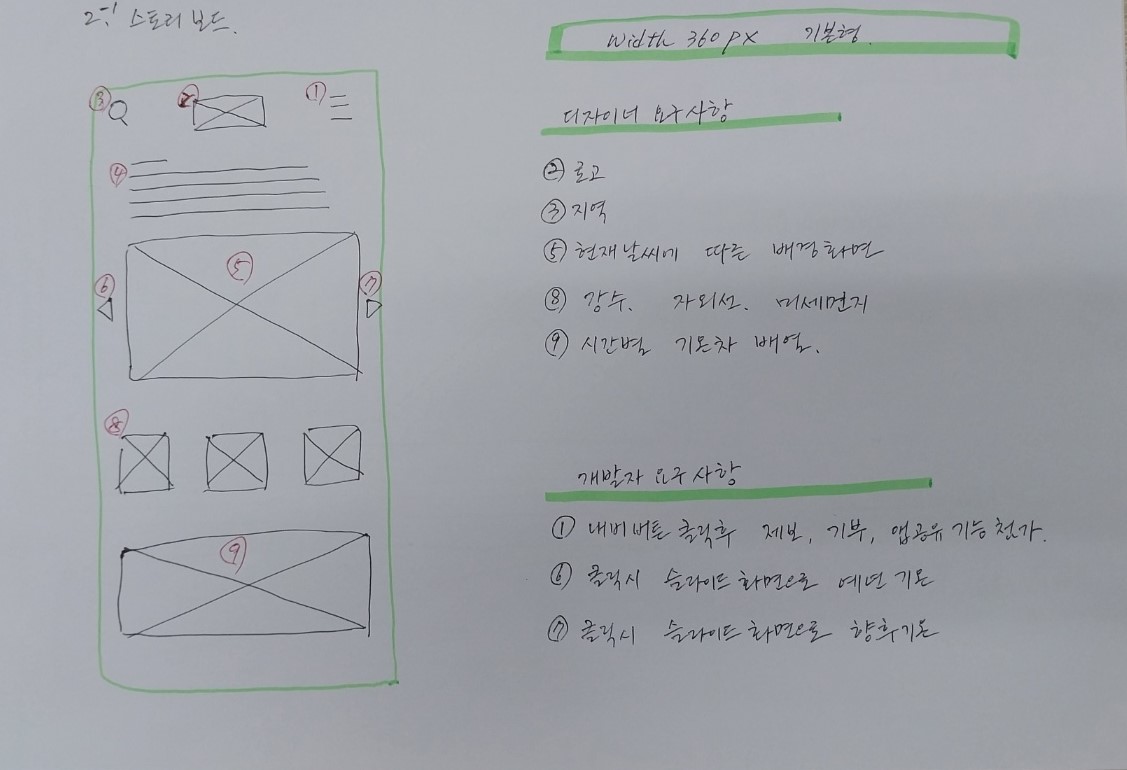 2-1 스토리보드.
width 360px 기본형.
③
②
①
④
⑤
⑥
⑦
⑧
⑨
디자이너 요구사항
② 로고
③ 지역
⑤ 현재날씨에 따른 배경화면
⑧ 강수. 자외선. 미세먼지
⑨ 시간별 기온차 배열.
개발자 요구사항
① 내비버튼 클릭후 제보, 기부, 앱공유 기능 천가.
⑥ 클릭시 슬라이드화면으로 예년 기온
⑦ 클릭시 슬라이드화면으로 향후기온